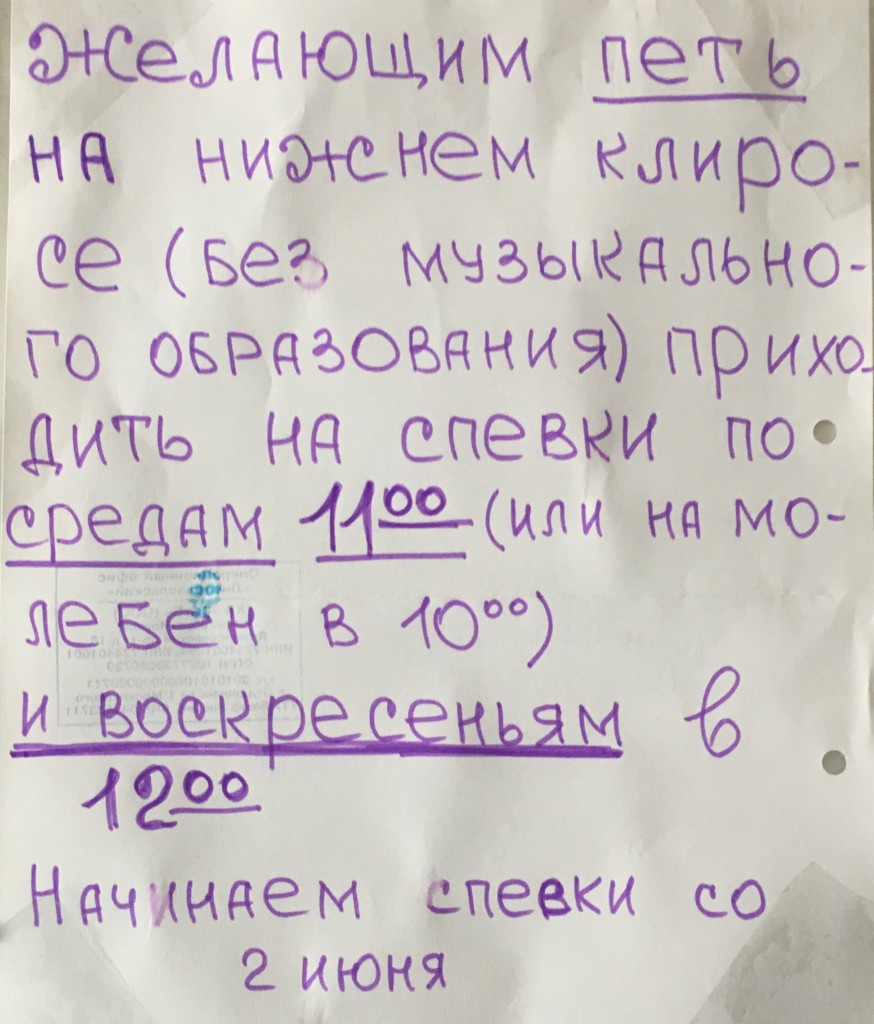 Желающим петь
на нижнем клиро-
се (без музыкально-
го образования) прихо-
дить на спевки по
средам 11⁰⁰ (или на мо-
лебен в 10⁰⁰)
и воскресеньям в
12⁰⁰
Начинаем спевки со
2 июня